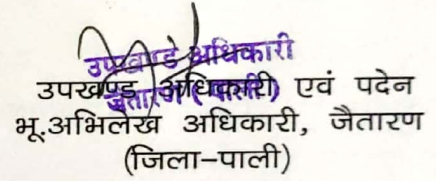 उपखण्ड अधिकारी
जैतारण (पाली)
उपखण्ड अधिकारी एवं पदेन
भू.अभिलेख अधिकारी, जैतारण
(जिला-पाली)